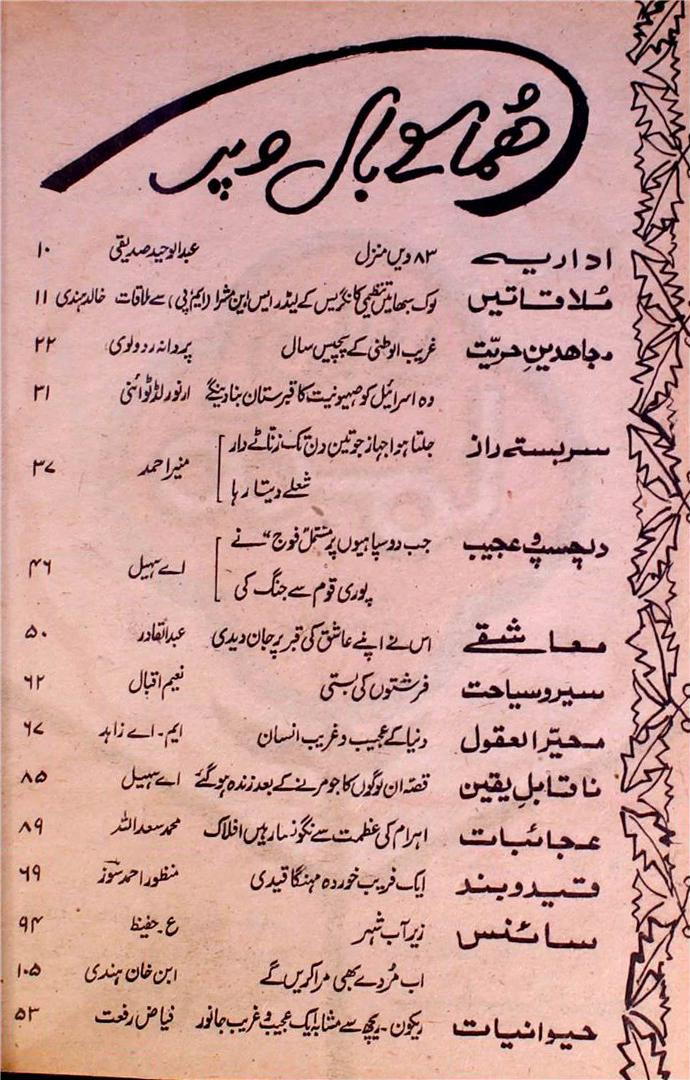 ھُماکے بال و پر
اداریہ ۸۳ ویں منزل عبدالوحید صدیقی ۱۰
مُلاقاتیں لوک سبھا میں تنظیمی کانگریس کے لیڈر ایس این مشرا (ایم پی) سے ملاقات خالد ہندی ۱۱
مجاھدینِ حریّت غریب الوطنی کے پچیس سال پردانہ ردولوی ۲۲
وہ اسرائیل کو صیہونیت کا قبرستان بنا دینگے ارنورلڈ ٹوائنی ۳۱
سربستہ راز جلتا ہوا جہاز جو تین دن تک زناٹے دار
شعلے دیتا رہا منیر احمد ۳۷
دلچسپ و عجیب جب دو سپاہیوں پر مشتمل "فوج" نے
پوری قوم سے جنگ کی اے سہیل ۴۶
معاشقے اس نے اپنے عاشق کی قبر پر جان دیدی عبدالقادر ۵۰
سیر و سیاحت فرشتوں کی بستی نعیم اقبال ۶۲
محیّر العقول دنیا کے عجیب و غریب انسان ایم۔ اے زاہد ۶۷
ناقابلِ یقین قصّہ ان لوگوں کا جو مرنے کے بعد زندہ ہو گئے اے سہیل ۸۵
عجائبات اہرام کی عظمت سے نگونسار ہیں افلاک محمد سعد اللہ ۸۹
قید و بند ایک فریب خوردہ مہنگا قیدی منظور احمد سوز ۶۹
سائنس زیر آب شہر ع۔ حفیظ ۹۴
اب مُردے بھی مرا کریں گے ابن خان ہندی ۱۰۵
حیوانیات ریکون۔ ریچھ سے مشابہ ایک عجیب و غریب جانور فیاض رفعت ۵۳